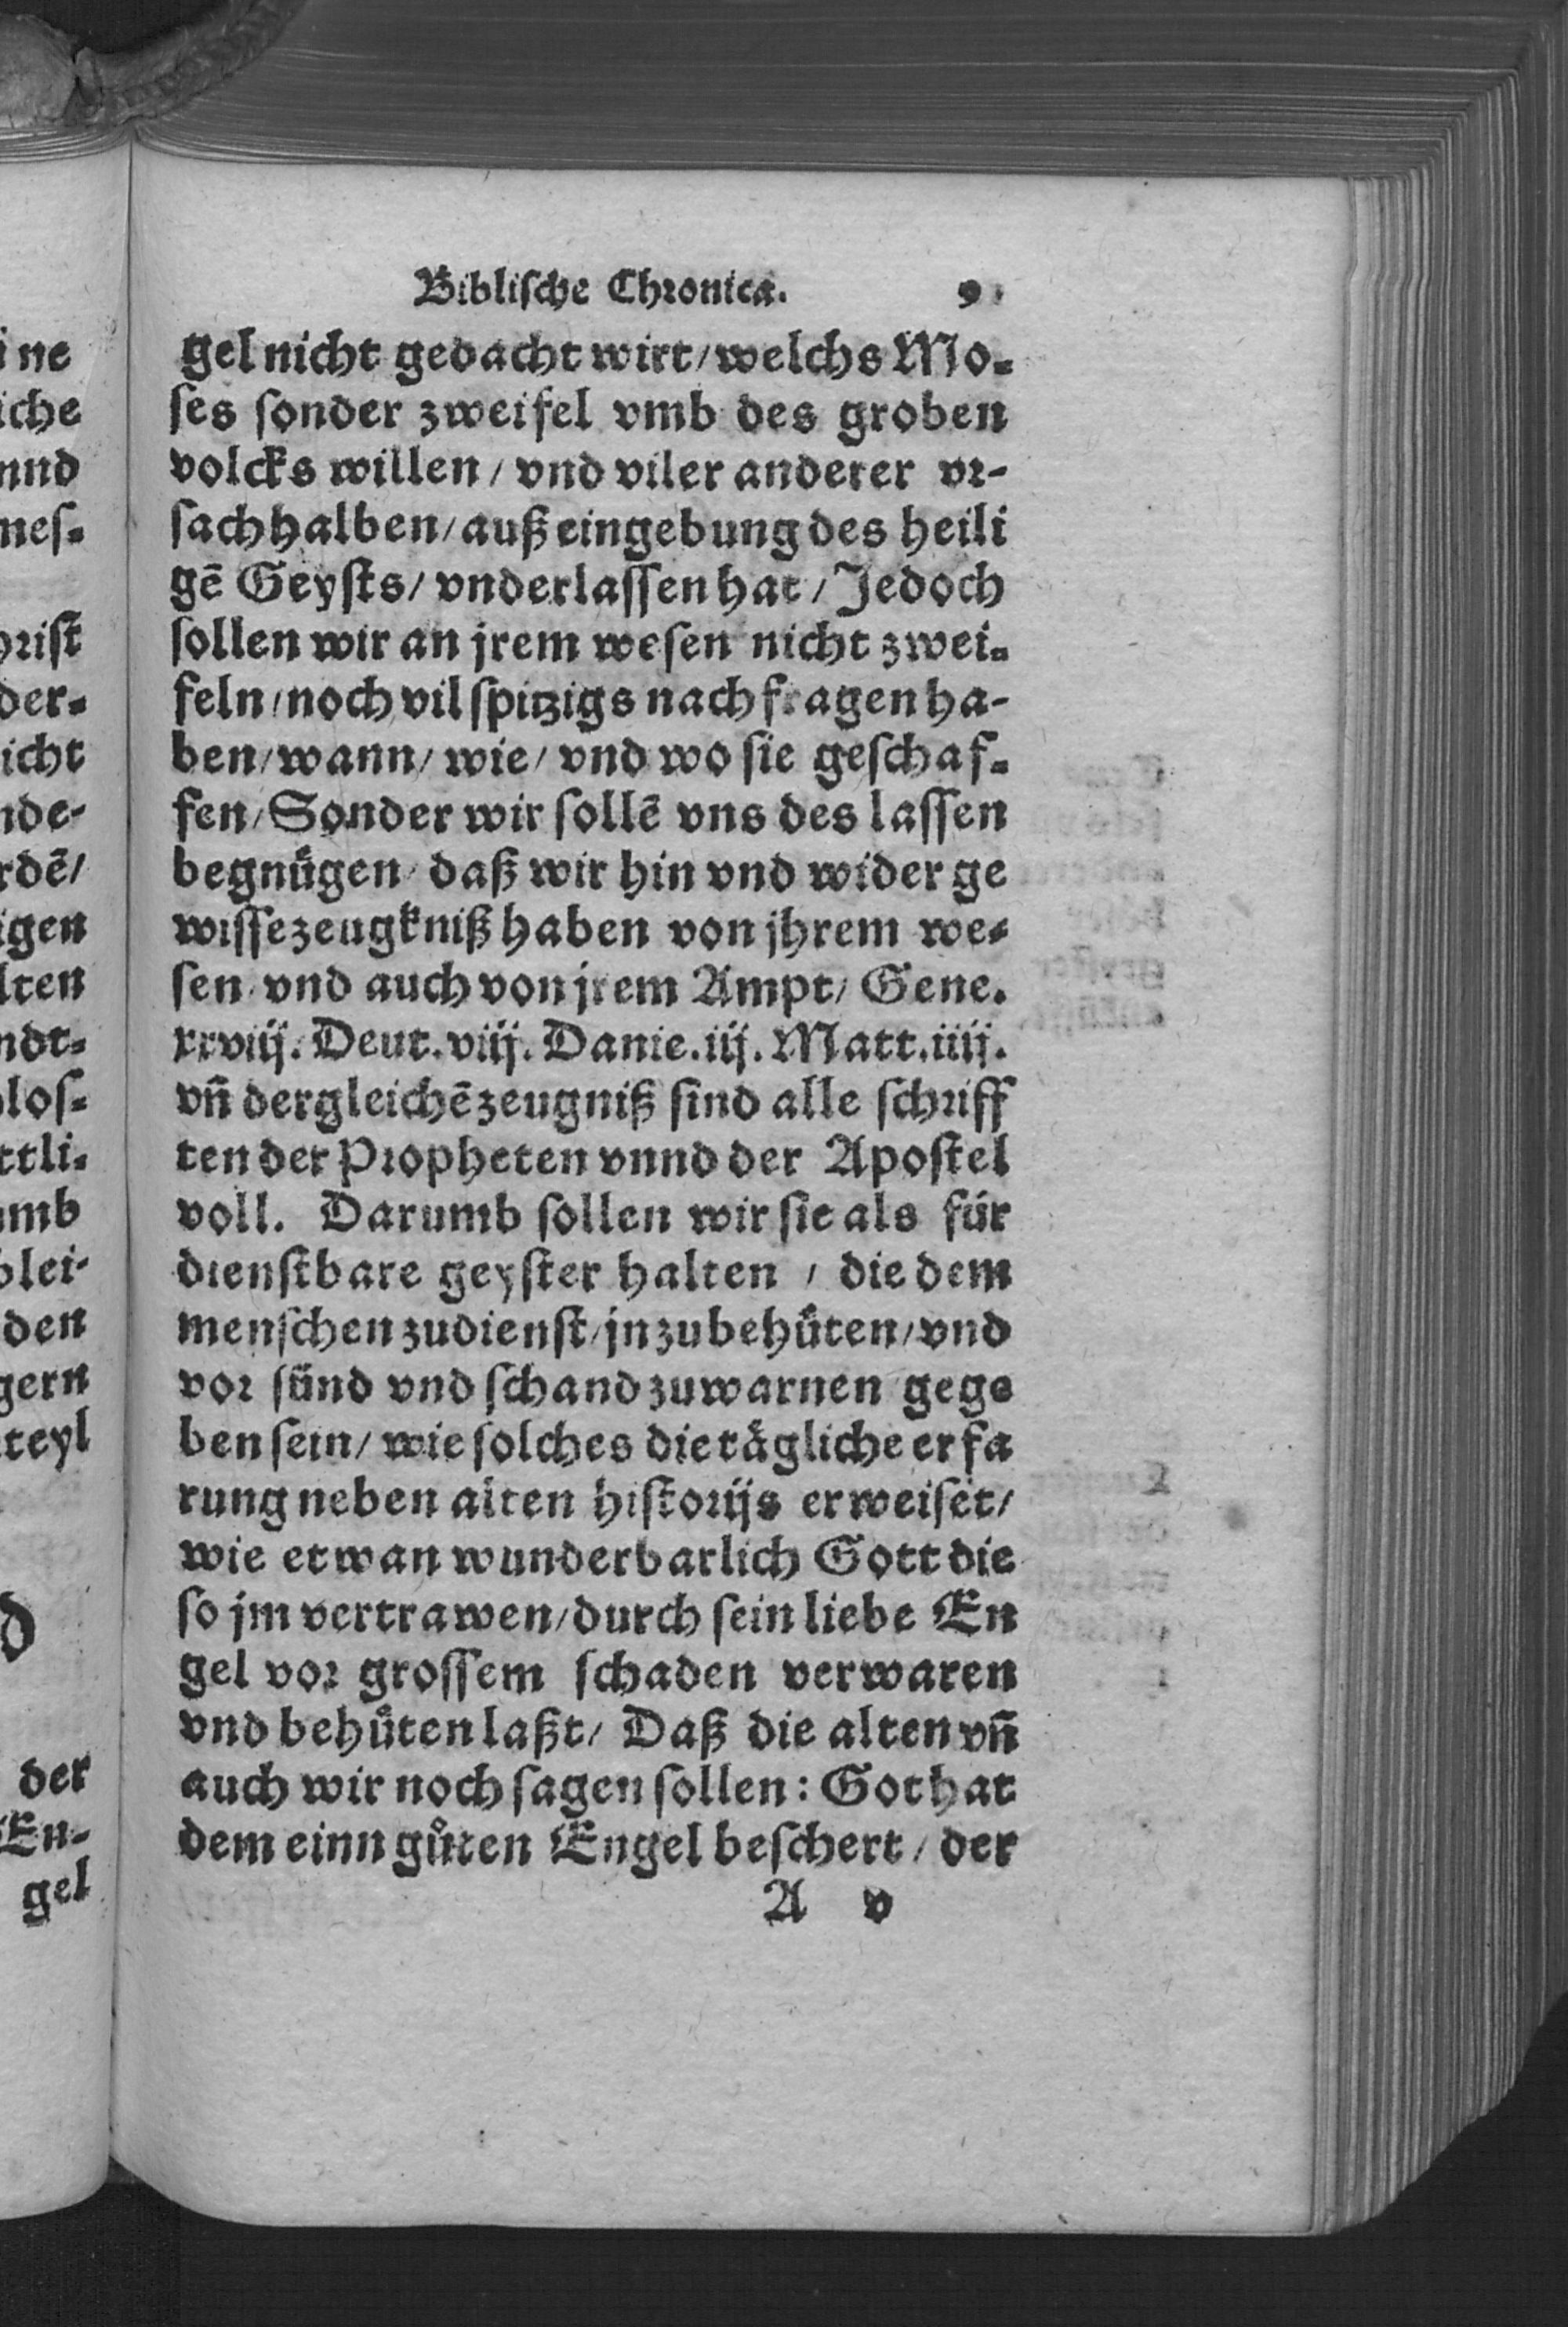 Biblische Chronica. 9
gel nicht gedacht wirt/welchs Mo-
ses sonder zweifel vmb des groben
volcks willen/vnd viler anderer vr-
sach halben/auß eingebung des heili
gē Geysts/vnderlassen hat/Jedoch
sollen wir an jrem wesen nicht zwei-
feln/noch vil spitzigs nach fragen ha-
ben/wann/wie/vnd wo sie geschaf-
fen/Sonder wir sollē vns des lassen
begnuͤgen/daß wir hin vnd wider ge
wisse zeugkniß haben von jhrem we-
sen/vnd auch von jrem Ampt/Gene.
xxviij. Deut.viij. Danie.iij. Matt.iiij.
vn̄ dergleichē zeugniß sind alle schriff
ten der Propheten vnnd der Apostel
voll. Darumb sollen wir sie als fuͤr
dienstbare geyster halten / die dem
menschen zudienst/jn zubehuͤten/vnd
vor suͤnd vnd schand zuwarnen gege
ben sein/wie solches die taͤgliche erfa
rung neben alten historijs erweiset/
wie etwan wunderbarlich Gott die
so jm vertrawen/durch sein liebe En
gel vor grossem schaden verwaren
vnd behuͤten laßt/ Daß die alten vn̄
auch wir noch sagen sollen: Got hat
dem einn guͦten Engel beschert/der
A v
ine
iche
nnd
mes-
hrist
der-
icht
nde-
rdē/
igen
lten
ndt-
los-
ttli-
umb
blei-
den
gern
teyl
d
der
En-
gel